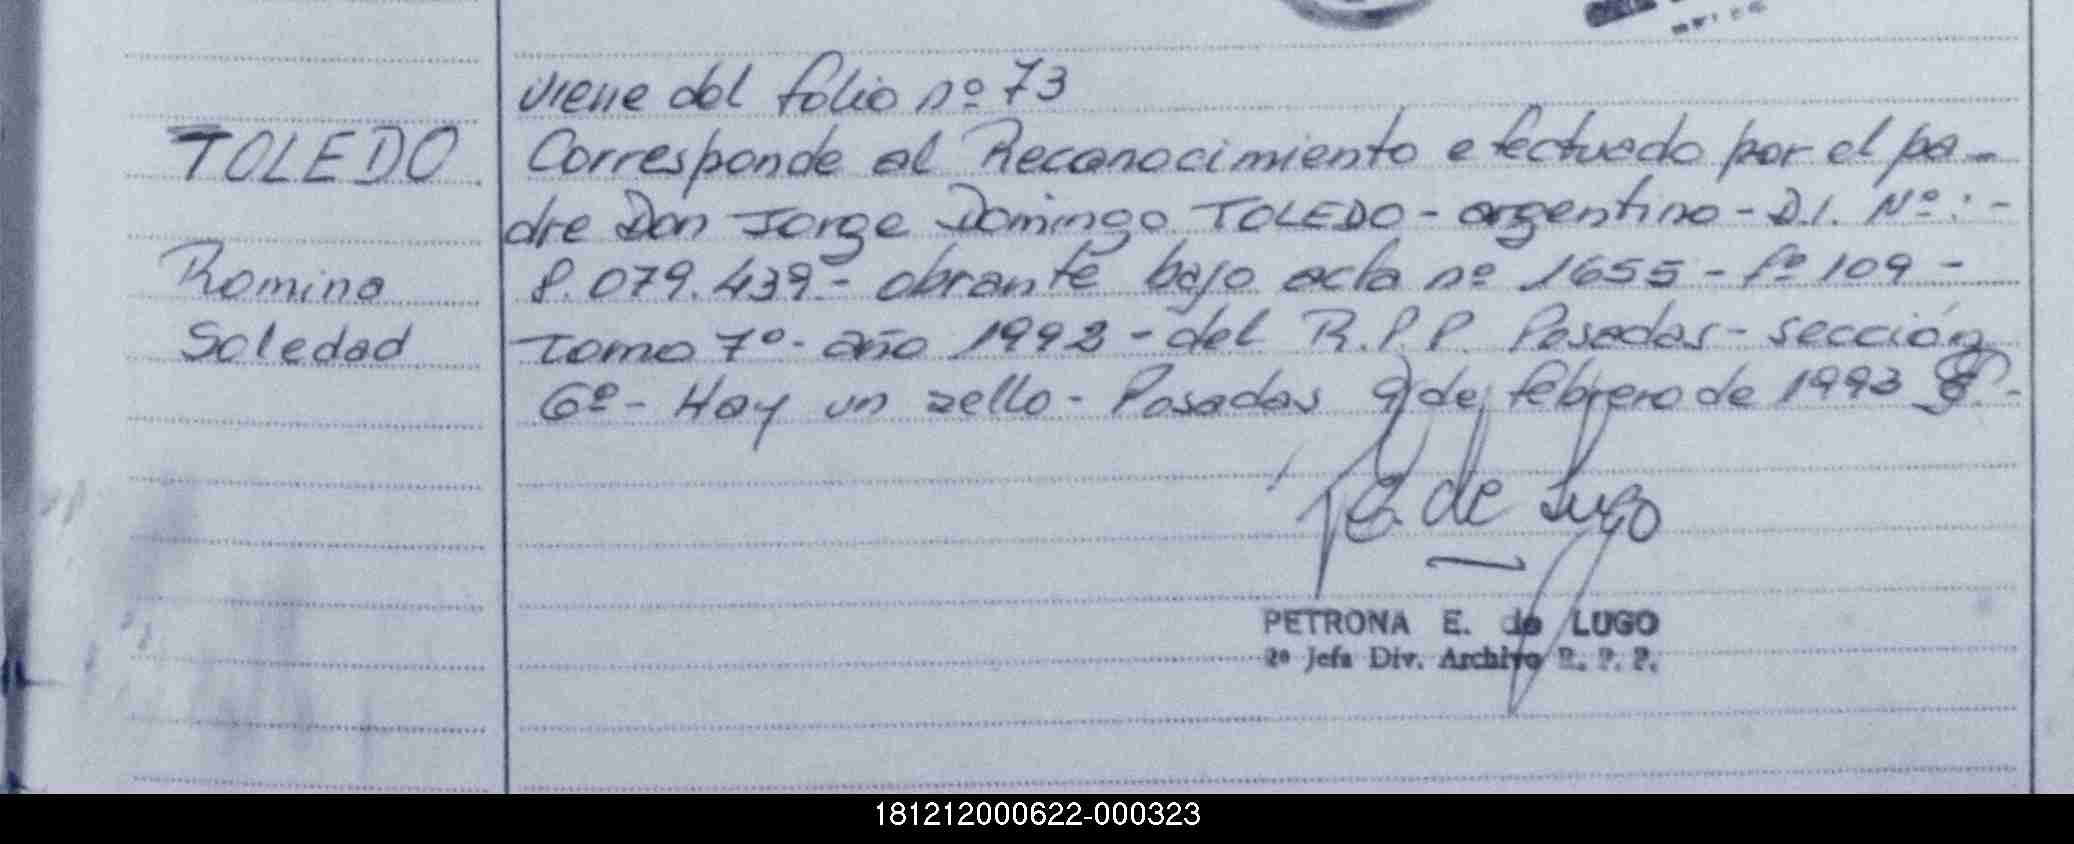 viene del folio nº 73
TOLEDO
Corresponde al Reconocimiento efectuado por el pa-
dre Don Jorge Domingo TOLEDO - argentino - D.I. Nº: -
Romina
8.079.439.- obrante bajo acta nº 1655 - fº 109 -
Soledad
tomo 7º - año 1992 - del R.P.P. Posadas - sección
6º - Hay un sello - Posadas 9 de febrero de 1993
P.E. de Lugo
PETRONA E. de LUGO
2ª Jefa Div. Archivo R. P. P.
181212000622-000323